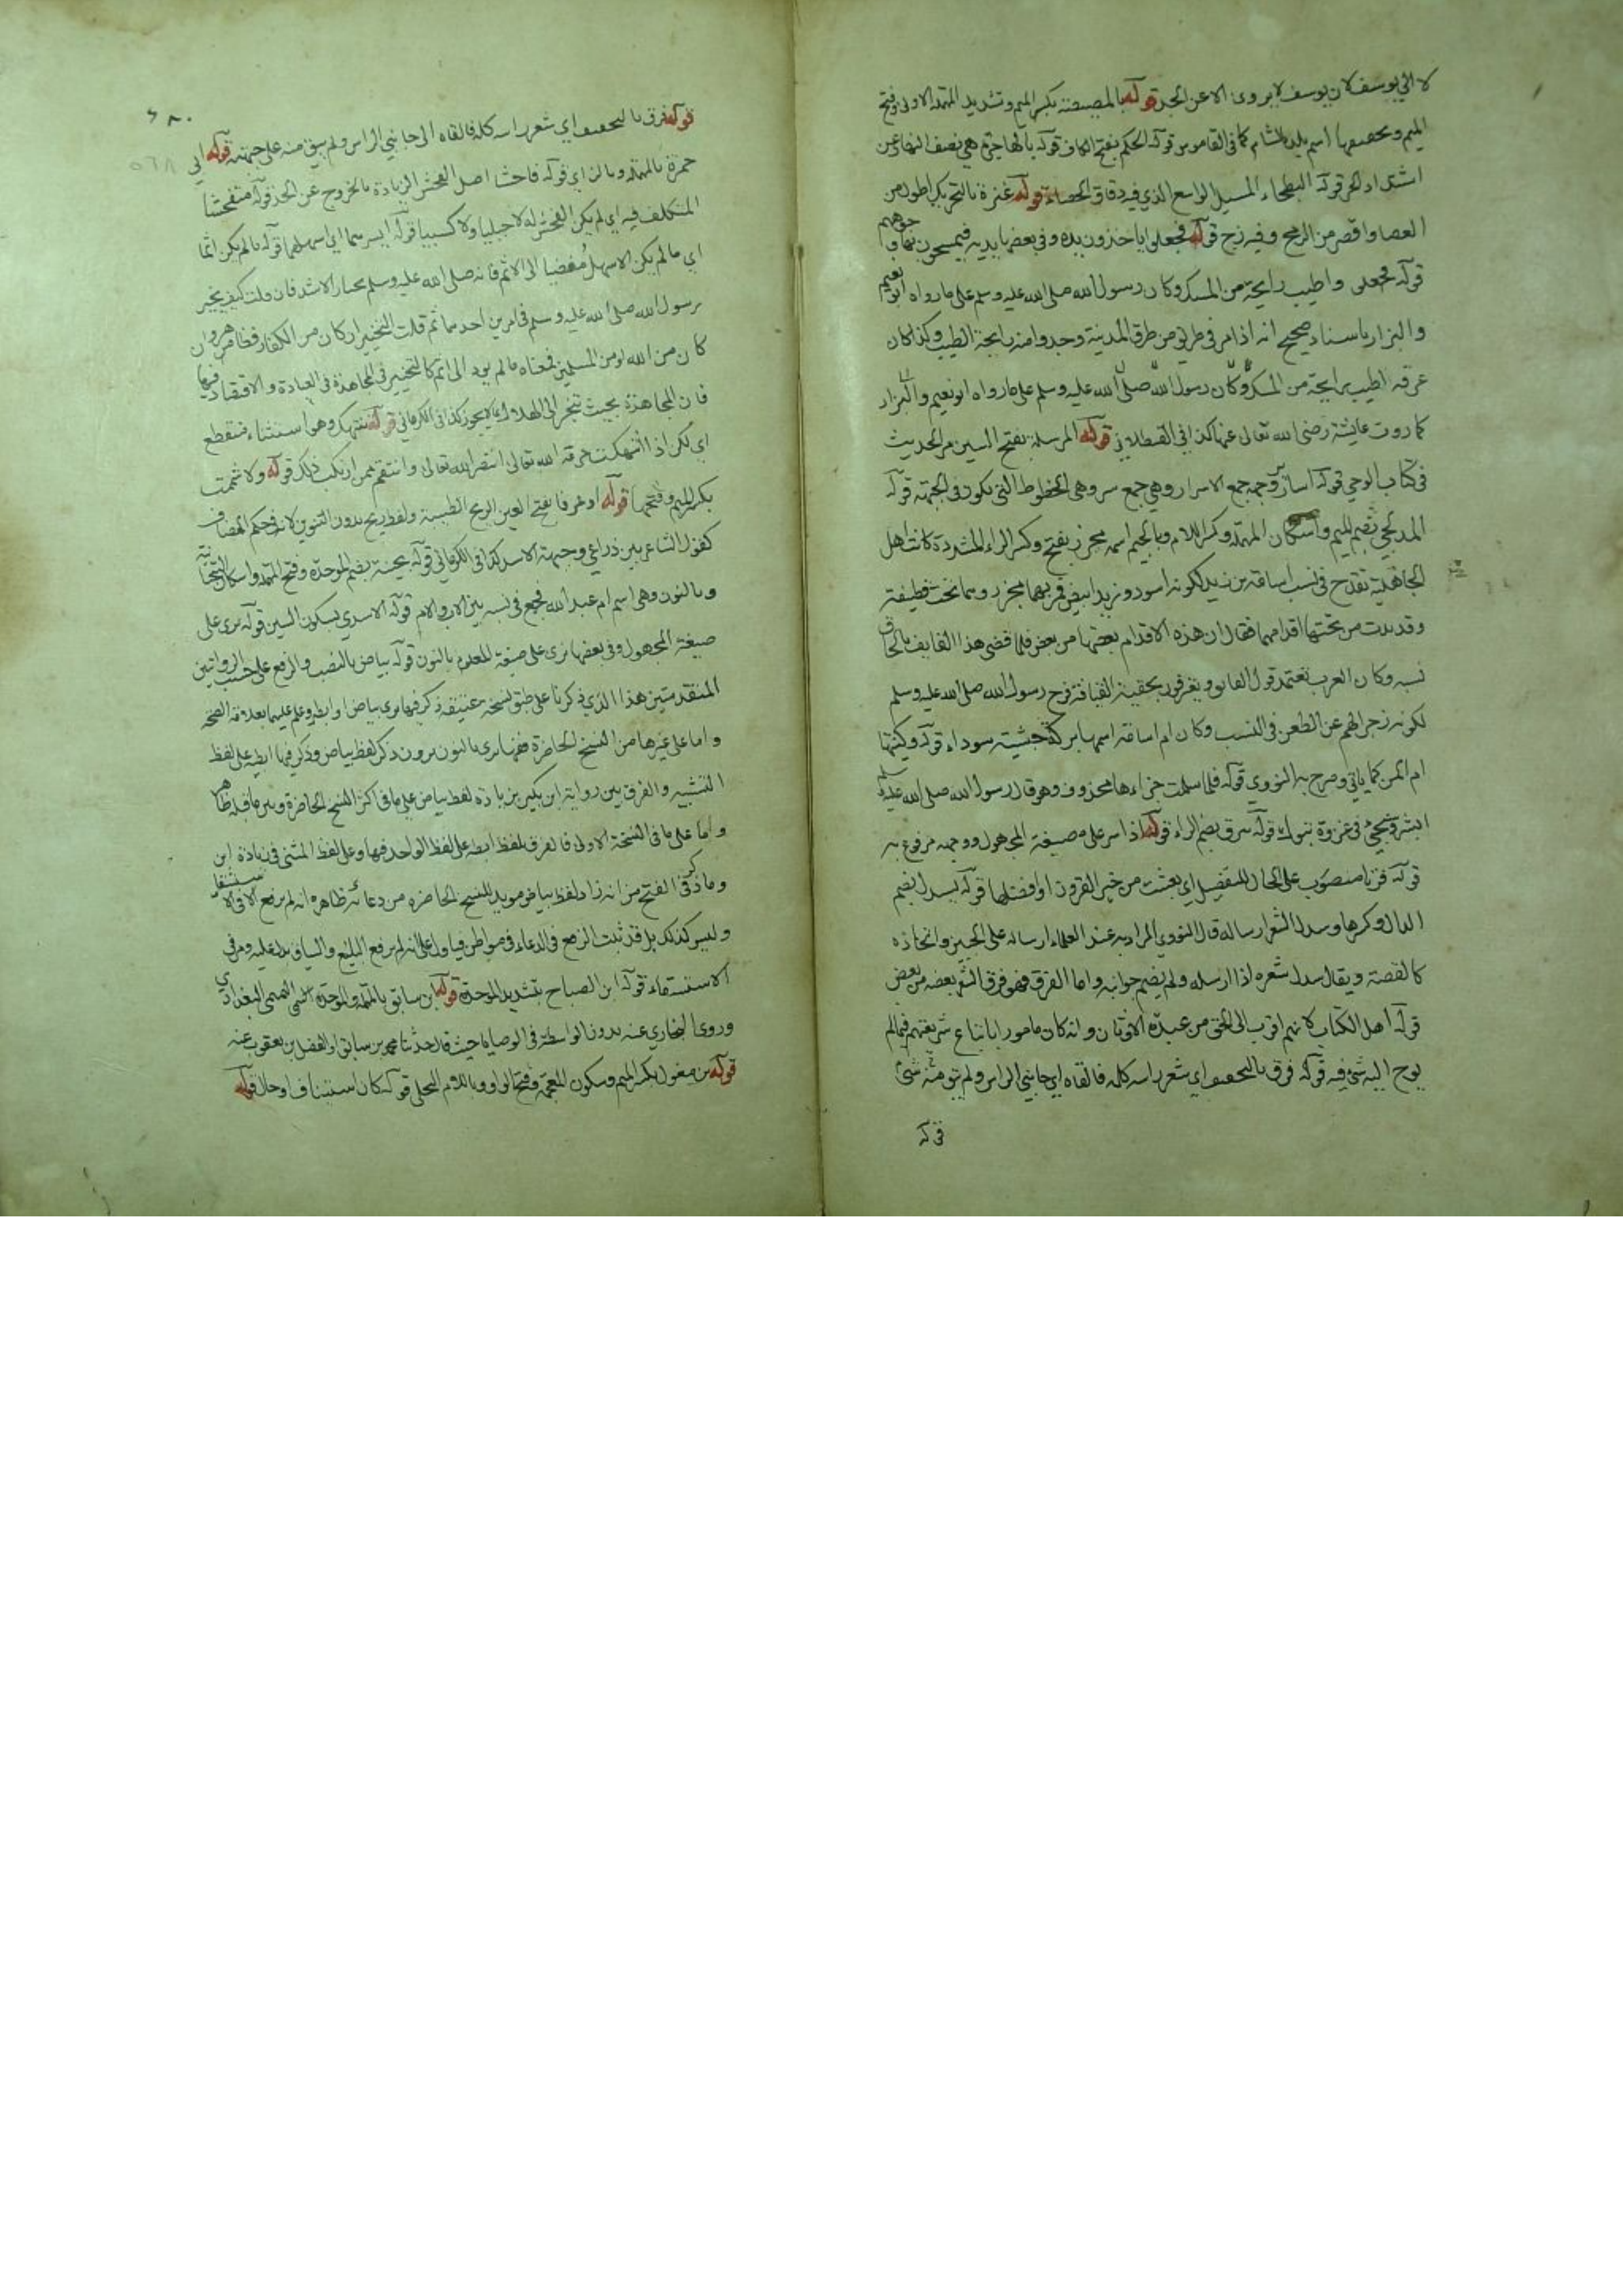 لا الي يوسف لان يوسف لا يروى الا عن الجد قوله بالمصيصة بكسر الميم وتشديد المهملة الاولى وفتح
الميم وتخفيفها اسم بلد بالشام كما في القاموس قوله الحكم بفتح الكاف قوله بالهاجرة هي نصف النهار عن
اشتداد الحر قوله البطحاء المسيل الواسع الذي فيه دقاق الحصاء قوله عنزة بالتحريك اطول من
العصا واقصر من الرمح وفيه زج قوله فجعلوا ياخذون يده وفي بعضها يديه فيمسحون بها وجوههم
قوله فجعلى واطيب رايحة من المسك وكان رسول الله صلى الله عليه وسلم على ما رواه ابو نعيم
والبزار باسناد صحيح انه اذا مر في طريق من طرق المدينة وجدوا منه رايحة الطيب وكذا كان
عرقه اطيب رايحة من المسك وكان رسول الله صلى الله عليه وسلم على ما رواه ابو نعيم والبزار
كما روت عايشة رضى الله تعالى عنها كذا في القسطلاني قوله المرسلة بفتح السين مر الحديث
في كتاب الوحي قوله اسارير وجهه جمع الاسرار وهي جمع سر وهي الخطوط التي يكون في الجبهة قوله
المدلجي بضم الميم واسكان المهملة وكسر اللام وبالجيم اسمه مجزز بفتح وكسر الراء المشددة كانت اهل
الجاهلية تقدح في نسب اسامة من زيد لكونه اسود وزيد ابيض فمر بهما مجزز وهما تحت قطيفة
وقد بدت من تحتها اقدامهما فقال ان هذه الاقدام بعضها من بعض فلما قضى هذا القايف بالحاق
نسبه وكان العرب تعتمد قول القايف ويعترفون بحقية القيافة فرح رسول الله صلى الله عليه وسلم
لكونه زجرا لهم عن الطعن في النسب وكان ام اسامة اسمها بركة حبشية سوداء قوله وكنيتها
ام ايمن كما ياتي وصرح به النووي قوله فلما سلمت جزاءها محذوف وهو قال رسول الله صلى الله عليه وسلم
ابشر فيجيء في غزوة تبوك قوله يبرق بضم الراء قوله اذا سر على صيغة المجهول ووجهه مرفوع به
قوله قرنا منصوب على الحال للتفضيل اي بعثت من خير القرون او افضلها قوله يسدل بضم
الدال وكسرها وسدل الشعر ارساله قال النووي المراد به عند العلماء ارساله على الجبين واتخاذه
كالقصة ويقال سدل شعره اذا ارسله ولم يضم جوانبه واما الفرق فهو فرق الشعر بعضه من بعض
قوله اهل الكتاب لانهم اقرب الى الحق من عبدة الاوثان وانه كان مامورا باتباع شريعتهم فيما لم
يوح اليه شئ فيه قوله فرق بالتخفيف اي شعر راسه كله فالقاه الي جانبي الراس ولم يبق منه شئ
قوله
قوله فرق بالتخفيف اي شعر راسه كله فالقاه الى جانبي الراس ولم يبق منه على جبهته قوله ابي
حمزة بالمهملة وبالزاي قوله فاحشا اصل الفحش الزيادة بالخروج عن الحد قوله متفحشا
المتكلف فيه اي لم يكن الفحش له لا جبليا ولا كسبيا قوله ايسرهما اي اسهلهما قوله ما لم يكن اثما
اي ما لم يكن الاسهل مفضيا الى الاثم فانه صلى الله عليه وسلم يختار الاشد فان قلت كيف يخير
رسول الله صلى الله عليه وسلم في امرين احدهما اثم قلت التخيير ان كان من الكفار فظاهر وان
كان من الله او من المسلمين فمعناه ما لم يود الى اثم كالتخيير في المجاهدة في العبادة والاقتصاد فيها
فان المجاهدة بحيث تنجر الى الهلاك لا يجوز كذا في الكرماني قوله تنتهك وهو استثناء منقطع
اي لكن اذا انتهكت حرمة الله تعالى انتصر لله تعالى وانتقم ممن ارتكب ذلك قوله ولا شممت
بكسر الميم وفتحها قوله او عرفا بفتح العين الريح الطيبة ولفظ ريح بدون التنوين لانه في حكم المضاف
كقول الشاعر بين ذراعي وجبهة الاسد كذا في الكرماني قوله بحينة بضم الموحدة وفتح المهملة واسكان التحتانية
وبالنون وهي اسم ام عبد الله فجمع في نسبه بين الاب والام قوله الاسدي بسكون السين قوله يرى على
صيغة المجهول وفي بعضها نرى على صيغة المعلوم بالنون قوله بياض بالنصب والرفع على حسب الروايتين
المتقدمتين هذا الذي ذكرنا على طبق نسخة عتيقة ذكر فيها يرى بياض ابطيه وعلم عليها بعلامة الصحة
واما على غيرها من النسخ الحاضرة ففيها نرى بالنون بدون ذكر لفظ بياض وذكر فيها ابطيه على لفظ
التثنية والفرق بين رواية ابن بكير بزيادة لفظ بياض على ما في اكثر النسخ الحاضرة وبين ما قبله ظاهر
واما على ما في النسخة الاولى فالفرق بلفظ ابطه على لفظ الواحد فيها وعلى لفظ المثنى في زيادة ابن
وما ذكر في الفتح من انه زاد لفظ بياض مويد للنسخ الحاضرة من دعائه ظاهره انه لم يرفع الا في الاستسقا
وليس كذلك بل قد ثبت الرفع في الدعاء في مواطن فياول على انه لم يرفع البليغ والسياق يدل عليه ومر في
الاستسقاء قوله ابن الصباح بتشديد الموحدة قوله ابن سابق بالمهملة والموحدة التميمي البغدادي
وروى البخاري عنه بدون الواسطة في الوصايا حيث قال حدثنا محمد بن سابق او الفضل بن يعقوب عنه
قوله بن مغول بكسر الميم وسكون المعجمة وفتح الواو وباللام البجلي قوله كان استيناف او حال قوله